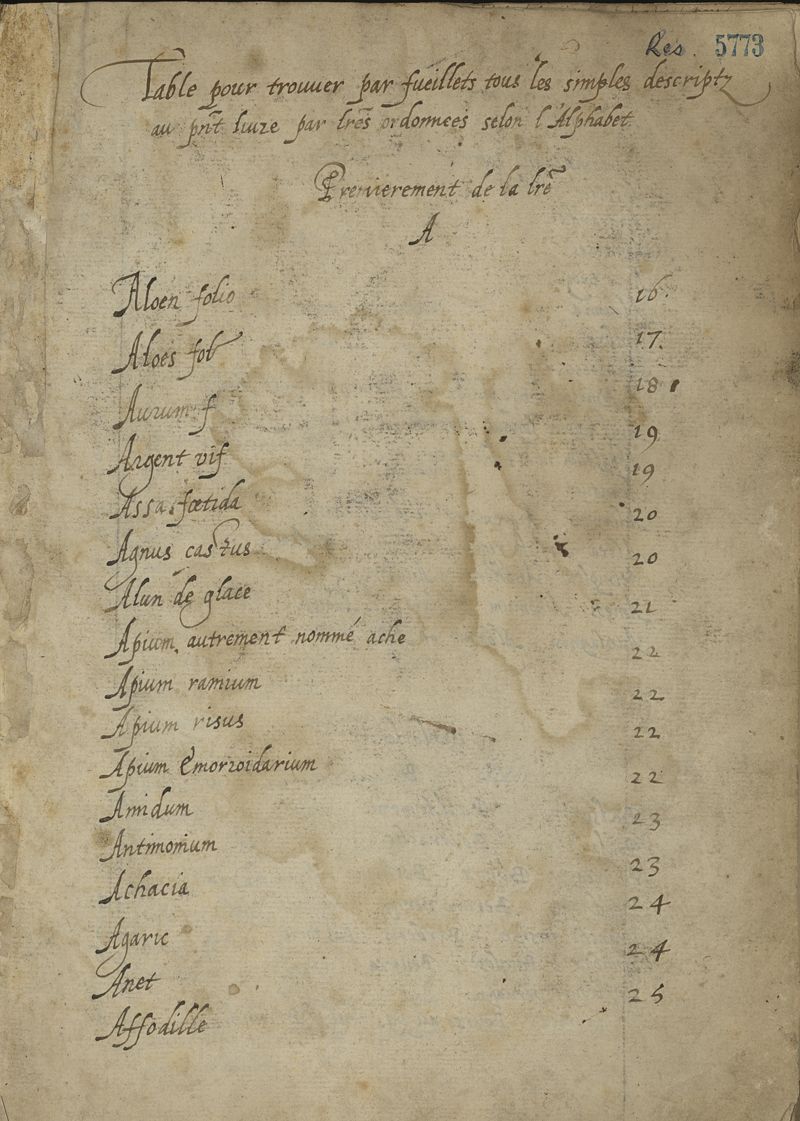 Res. 5773
Table pour trouuer par fueillets tous les simples descriptz
au pñt liure par lrẽs ordonnees selon l'Alphabet
Premierement de la lrẽ
A
Aloen folio 16.
Aloes fol 17.
Aurum f 18
Argent vif 19
Assa fœtida 19
Agnus castus 20
Alun de glace 20
Apium, autrement nommé ache 21
Apium ramium 22
Apium risus 22
Apium Emorroidarium 22
Amidum 22
Antimonium 23
Achacia 23
Agaric 24
Anet 24
Affodille 25